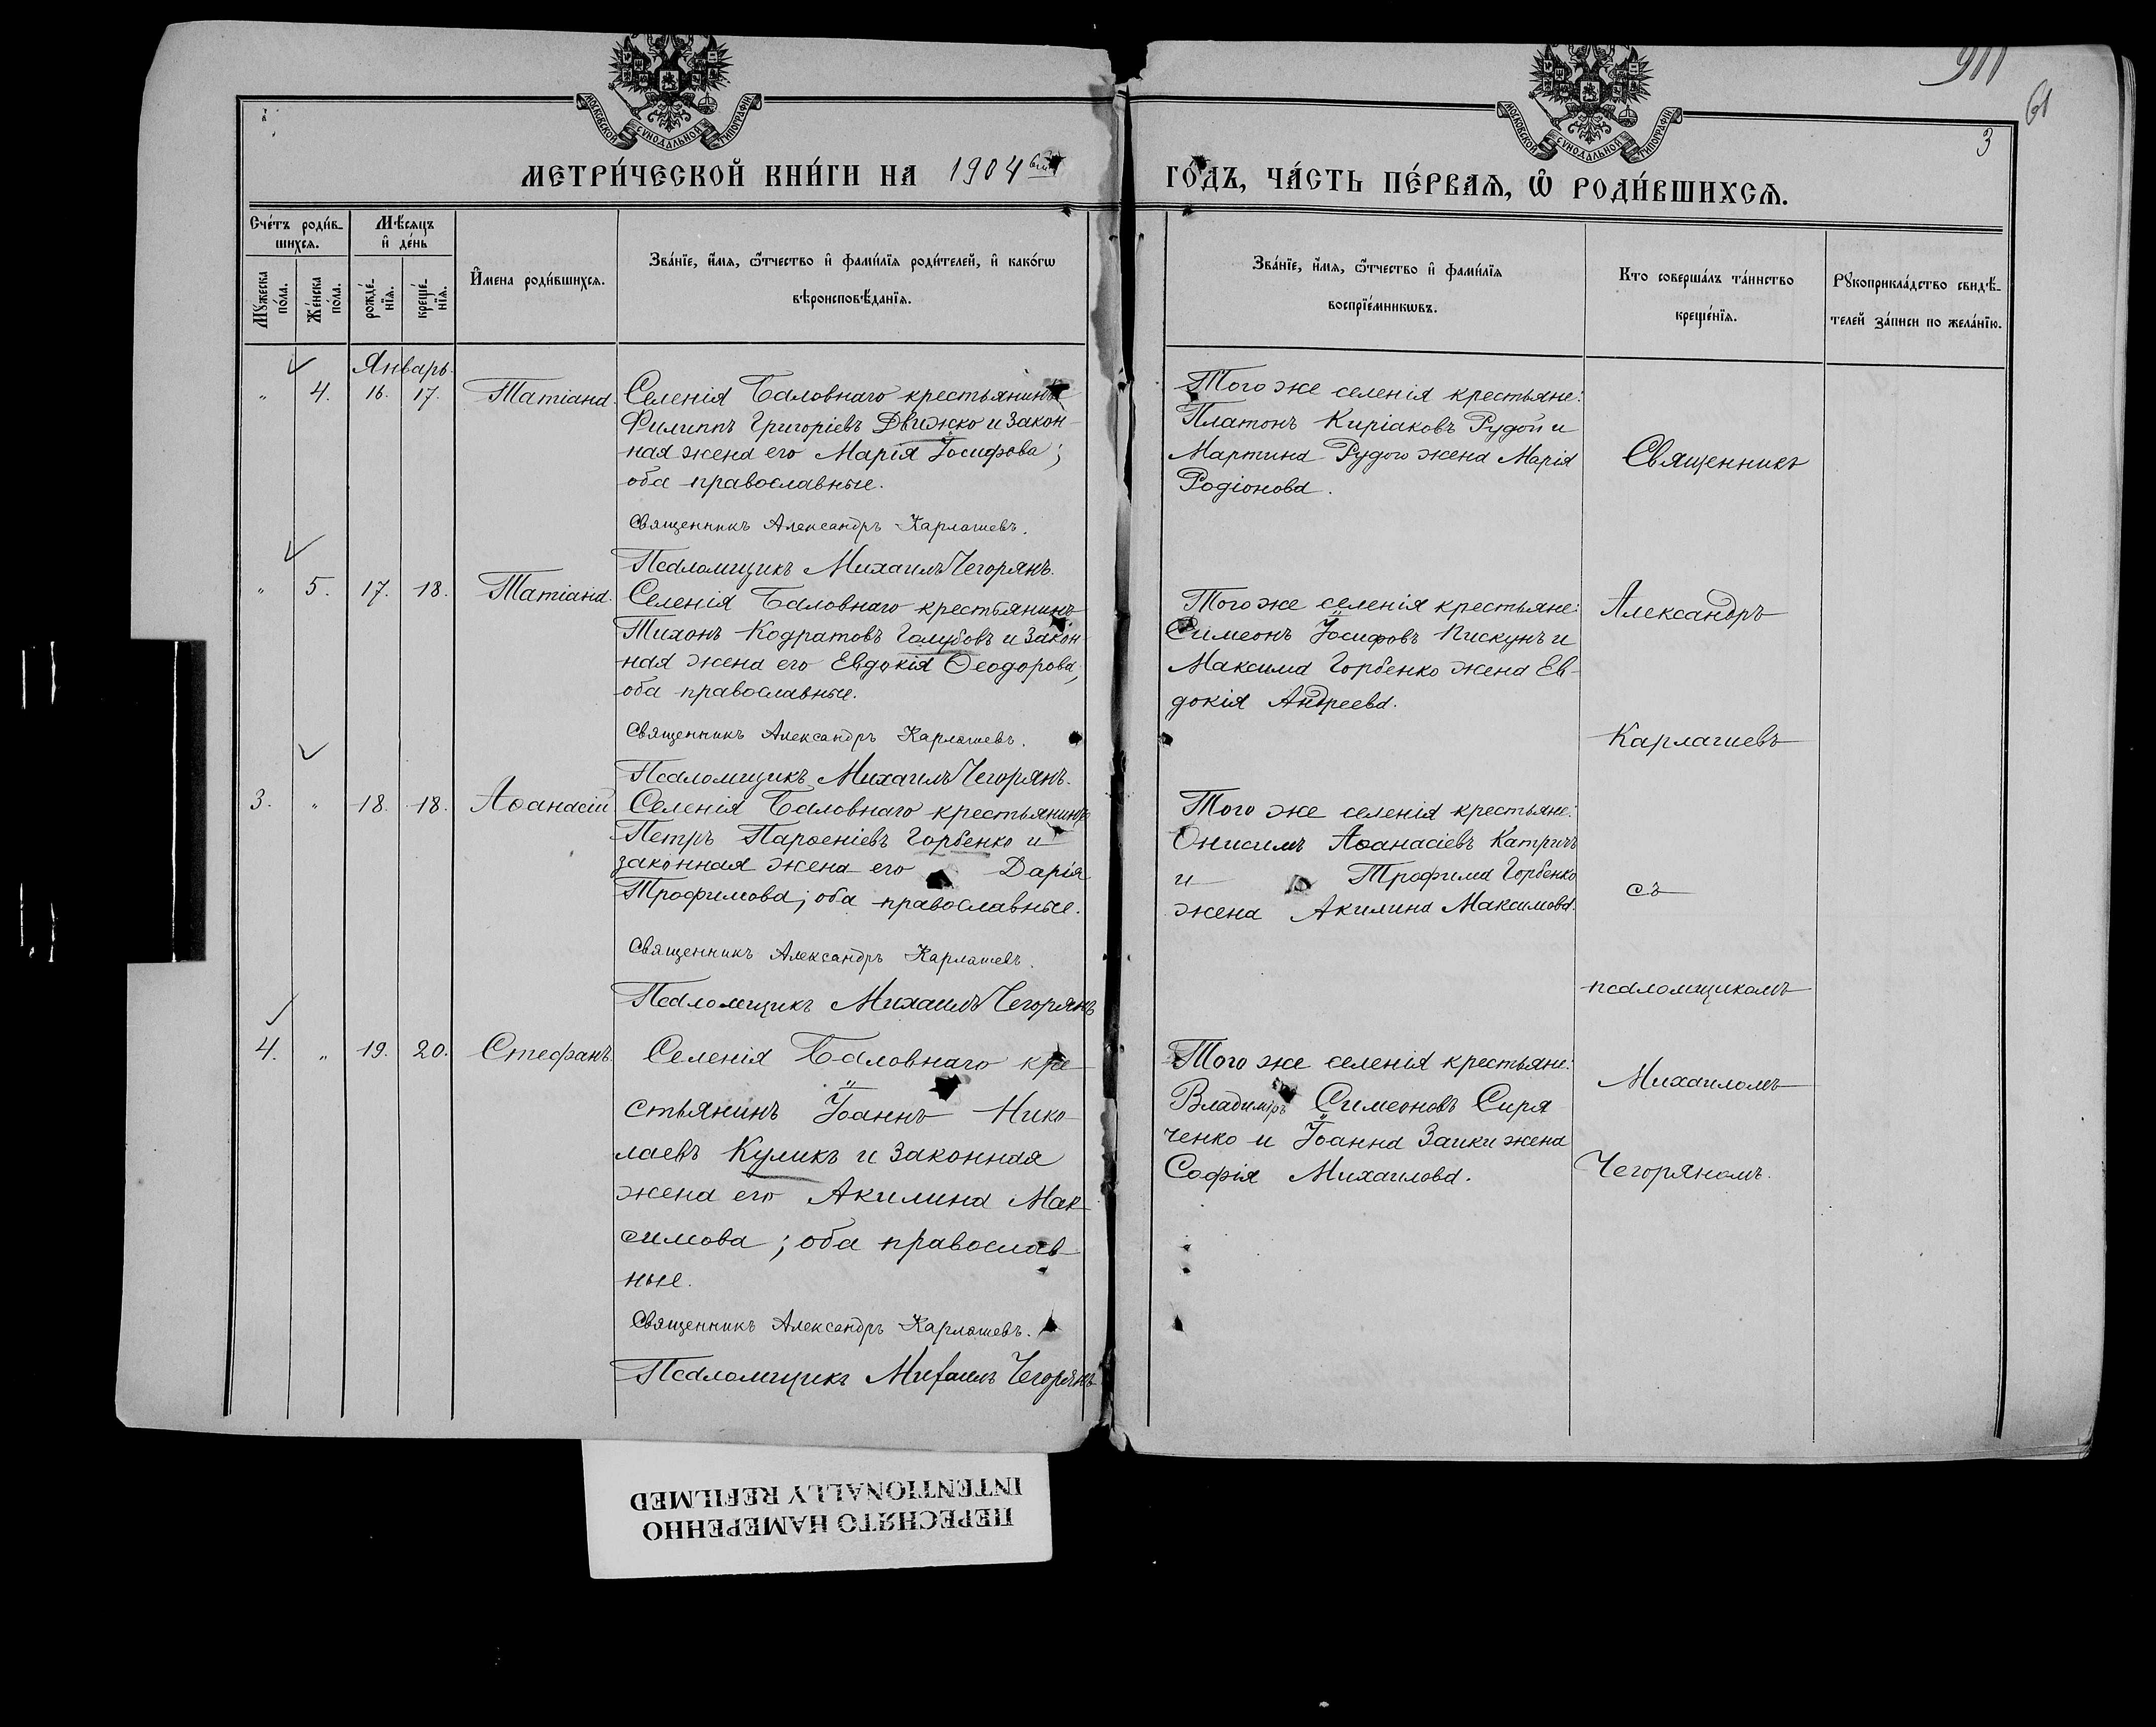 911
61
3
МОСКОВСКОЙ СѴНОДАЛЬНОЙ ТИПОГРАФІИ
МОСКОВСКОЙ СѴНОДАЛЬНОЙ ТИПОГРАФІИ
МЕТРИ́ЧЕСКОЙ КНИ́ГИ НА 1904
ГО́ДЪ, ЧА́СТЬ ПЕ́РВАѦ, Ѽ РОДИ́ВШИХСѦ.
Сче́тъ роди́в-
шихсѧ.
Мѣ́сѧцъ
и҆ де́нь
Мꙋ́жеска
по́ла.
Же́нска
по́ла.
рожде́-
нїѧ.
креще́-
нїѧ.
И҆мена роди́вшихсѧ.
Зва́нїе, и҆́мѧ, ѻ҆́тчество и҆ фами́лїѧ роди́телей, и҆ како́гѡ
вѣроисповѣ́данїѧ.
Зва́нїе, и҆́мѧ, ѻ҆́тчество и҆ фами́лїѧ
воспрїе́мникѡвъ.
Кто соверша́лъ та́инство
креще́нїѧ.
Рꙋкоприкла́дство свидѣ́-
телей за́писи по жела́нїю.
Январь.
" 4. 16. 17. Татіана.
Селенія Баловнаго крестьянинъ
Филиппъ Григоріевъ Движко и закон-
ная жена его Марія Іосифова;
оба православные.
Священникъ Александръ Карлашевъ.
Псаломщикъ Михаилъ Чегорянъ.
Того же селенія крестьяне:
Платонъ Киріаковъ Рудой и
Мартина Рудого жена Марія
Родіонова.
Священникъ
" 5. 17. 18. Татіана.
Селенія Баловнаго крестьянинъ
Тихонъ Кодратовъ Голубовъ и закон-
ная жена его Евдокія Ѳеодорова,
оба православные.
Священникъ Александръ Карлашевъ.
Псаломщикъ Михаилъ Чегорянъ.
Того же селенія крестьяне:
Симеонъ Іосифовъ Пискунъ и
Максима Горбенко жена Ев-
докія Андреева.
Александръ
Карлашевъ
3. " 18. 18. Аѳанасій
Селенія Баловнаго крестьянинъ
Петръ Парѳеніевъ Горбенко и
законная жена его Дарія
Трофимова; оба православные.
Священникъ Александръ Карлашевъ.
Псаломщикъ Михаилъ Чегорянъ
Того же селенія крестьяне:
Онисимъ Аѳанасіевъ Катричъ
и Трофима Горбенко
жена Акилина Максимова.
съ
псаломщикомъ
4. " 19. 20. Стефанъ
Селенія Баловнаго кре-
стьянинъ Іоаннъ Нико-
лаевъ Куликъ и законная
жена его Акилина Мак-
симова; оба православ-
ные.
Священникъ Александръ Карлашевъ.
Псаломщикъ Михаилъ Чегорянъ
Того же селенія крестьяне:
Владиміръ Симеоновъ Сиря
ченко и Іоанна Заики жена
Софія Михаилова.
Михаиломъ
Чегоряномъ.
ПЕРЕСНЯТО НАМЕРЕННО
INTENTIONALLY REFILMED